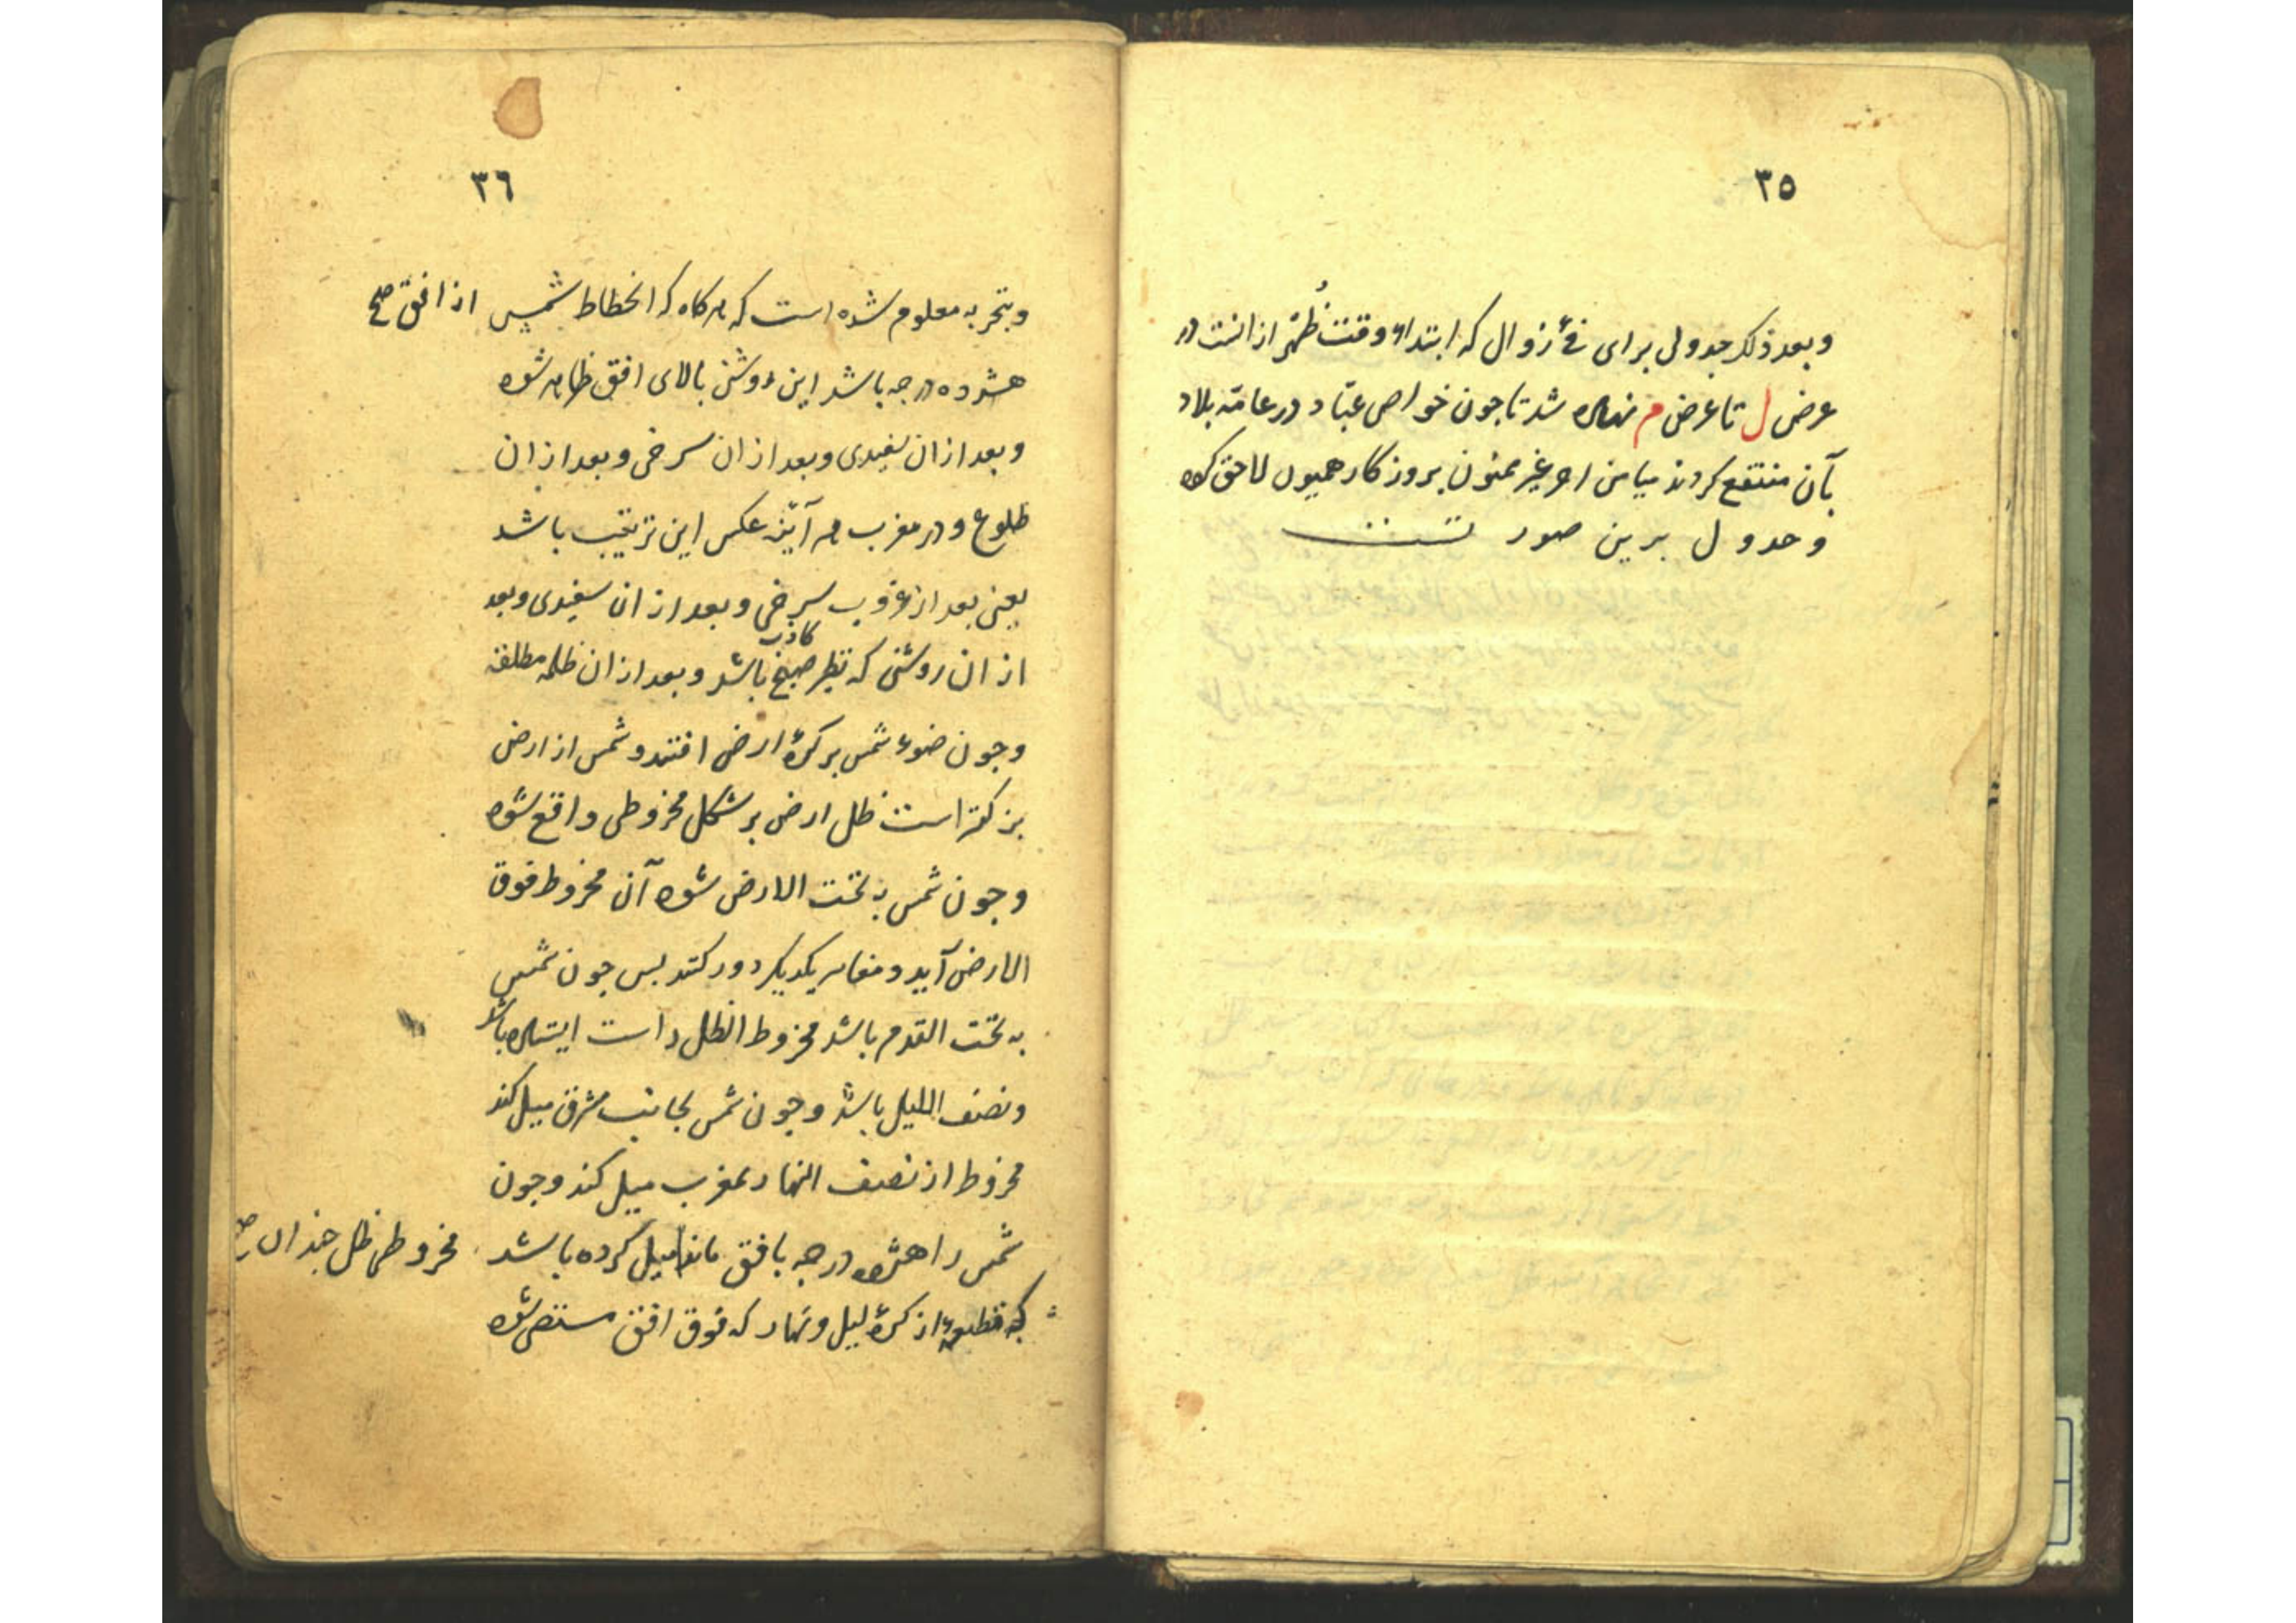 ٣٥
وبعد ذلک جدولی برای فئ زوال که ابتداء وقت ظُهر از انست در
عرض ل تا عرض م نهاده شد تا جون خواص عبّاد در عامّه بلاد
بآن منتفع کردند میامن اجر غیر ممنون بروزکار همیون لاحق کرده
وجدول برین صورتست
٣٦
وبتجربه معلوم شده است که هرکاه که انحطاط شمس از افق صح
هشرده درجه باشد این روشنی بالای افق ظاهر شود
وبعد ازان سفیدی وبعد ازان سرخی وبعد ازان
طلوع ودر مغرب هر آینه عکس این ترتیب باشد
یعنی بعد از غروب سرخی وبعد ازان سفیدی وبعد
ازان روشنی که نظیر صبح کاذب باشد وبعد ازان ظلمه مطلقه
وجون ضوء شمس بر کرهٔ ارض افتد وشمس از ارض
بزرکتر است ظل ارض بر شکل مخروطی واقع شود
وجون شمس به تحت الارض شود آن مخروط فوق
الارض آید و یکدیکر دور کنند بس جون شمس
به تحت القدم باشد مخروط الظل راست ایستاده باشد
ونصف اللیل باشد وجون شمس بجانب مشرق میل کند
مخروط از نصف النهار بمغرب میل کند وجون
شمس را هشرده درجه بافق مانده مخروطی ظل جندان صح میل کرده باشد
که قطعهٔ از کرهٔ لیل ونهار که فوق افق مستضی شود